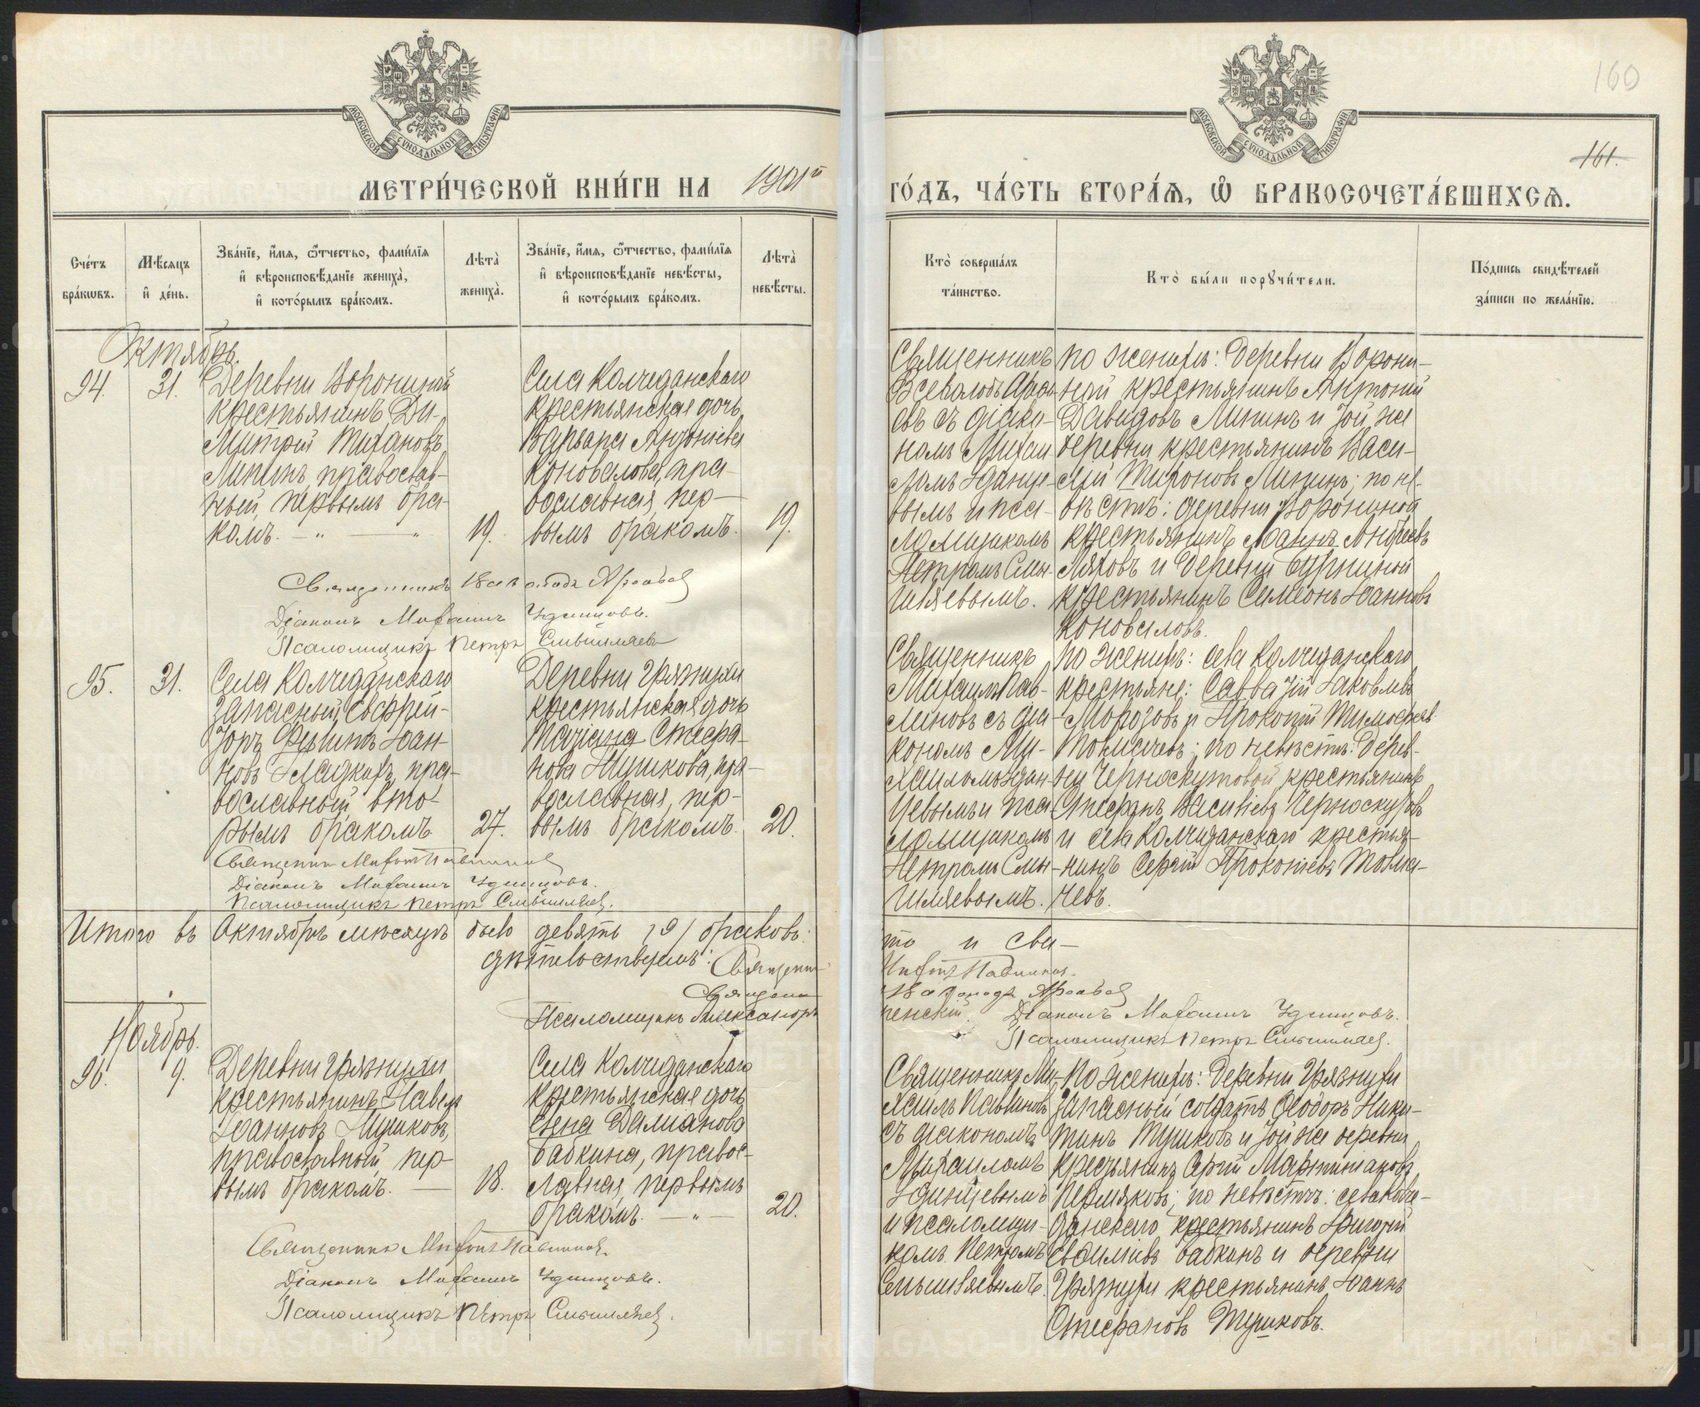 160
161.
МЕТРИ́ЧЕСКОЙ КНИ́ГИ НА 1901й ГО́ДЪ, ЧА́СТЬ ВТОРА́Я, Ѽ БРАКОСОЧЕТА́ВШИХСЯ.
МОСКОВСКОЙ СѴНОДАЛЬНОЙ ТИПОГРАФІИ
МОСКОВСКОЙ СѴНОДАЛЬНОЙ ТИПОГРАФІИ
Сче́тъ бра́кѡвъ.
Мѣ́сяцъ и҆ де́нь.
Зва́нїе, и҆́мя, ѻ҆́тчество, фами́лїя и҆ вѣроисповѣ́данїе жениха̀, и҆ кото́рымъ бра́комъ.
Лѣта̀ жениха̀.
Зва́нїе, и҆́мя, ѻ҆́тчество, фами́лїя и҆ вѣроисповѣ́данїе невѣ́сты, и҆ кото́рымъ бра́комъ.
Лѣта̀ невѣ́сты.
Кто̀ соверша́лъ та́инство.
Кто̀ бы́ли порꙋчи́тели.
По́дпись свидѣ́телей за́писи по жела́нїю.
Октябрь.
94.
31.
Деревни Ворониной
крестьянинъ Ди-
митрій Тихановъ
Липинъ, православ-
ный, первымъ бра-
комъ. — „ — „
19.
Села Колчеданскаго
крестьянская дочь
Варвара
Коновалова, пра-
вославная, пер-
вымъ бракомъ.
19.
Священникъ
Всеволодъ
съ діако-
номъ Михаи-
ломъ Удинце-
вымъ и пса-
ломщикомъ
Петромъ Смы-
шляевымъ.
По женихѣ: деревни Ворони-
ной крестьянинъ Антоній
Давидовъ Липинъ и той же
деревни крестьянинъ Васи-
лій Липинъ; по не-
вѣстѣ: деревни Ворониной
крестьянинъ Іоаннъ Андреевъ
и деревни Бурниной
крестьянинъ Симеонъ Іоанновъ
Коноваловъ.
Священникъ Всеволодъ
Діаконъ Михаилъ Удинцовъ.
Псаломщикъ Петръ Смышляевъ
95.
31.
Села Колчеданскаго
запасный ефрей-
торъ Филиппъ Іоан-
новъ Гладкихъ, пра-
вославный, вто-
рымъ бракомъ
27.
Деревни Грязнухи
крестьянская дочь
Татіана Стефа-
нова пра-
вославная, пер-
вымъ бракомъ.
20.
Священникъ
Михаилъ Пав-
линовъ съ діа-
кономъ Ми-
хаиломъ Удин-
цевымъ и пса-
ломщикомъ
Петромъ Смы-
шляевымъ.
По женихѣ: села Колчеданскаго
крестьяне: Савватій Іаковлевъ
Морозовъ и Прокопій Тимофеевъ
Толмачевъ; по невѣстѣ: дерев-
ни Черноскутовой крестьянинъ
Стефанъ Васильевъ Черноскутовъ
и села Колчеданскаго крестья-
нинъ Сергій Прокопіевъ Толма-
чевъ.
Священникъ Михаилъ Павлиновъ
Діаконъ Михаилъ Удинцовъ.
Псаломщикъ Петръ Смышляевъ.
Итого въ Октябрѣ мѣсяцѣ было девять /9/ браковъ: что и сви-
дѣтельствуемъ: Священникъ Михаилъ Павлиновъ.
Священникъ Всеволодъ
Псаломщикъ Александръ
Діаконъ Михаилъ Удинцовъ.
Псаломщикъ Петръ Смышляевъ.
Ноябрь.
96.
9.
Деревни Грязнухи
крестьянинъ Павелъ
Іоанновъ
православный, пер-
вымъ бракомъ. —
18.
Села Колчеданскаго
крестьянская дочь
Елена Даміанова
Бабкина, правос-
лавная, первымъ
бракомъ. — „ —
20.
Священникъ Ми-
хаилъ Павлиновъ
съ діакономъ
Михаиломъ
Удинцевымъ
и псаломщи-
комъ Петромъ
Смышляевымъ.
По женихѣ: деревни Грязнухи
запасный солдатъ Ѳеодоръ Ники-
тинъ и той же деревни
крестьянинъ Сергій
Пермяковъ; по невѣстѣ: села Колче-
данскаго крестьянинъ Григорій
Бабкинъ и деревни
Грязнухи крестьянинъ Іоаннъ
Стефановъ
Священникъ Михаилъ Павлиновъ.
Діаконъ Михаилъ Удинцовъ.
Псаломщикъ Петръ Смышляевъ.